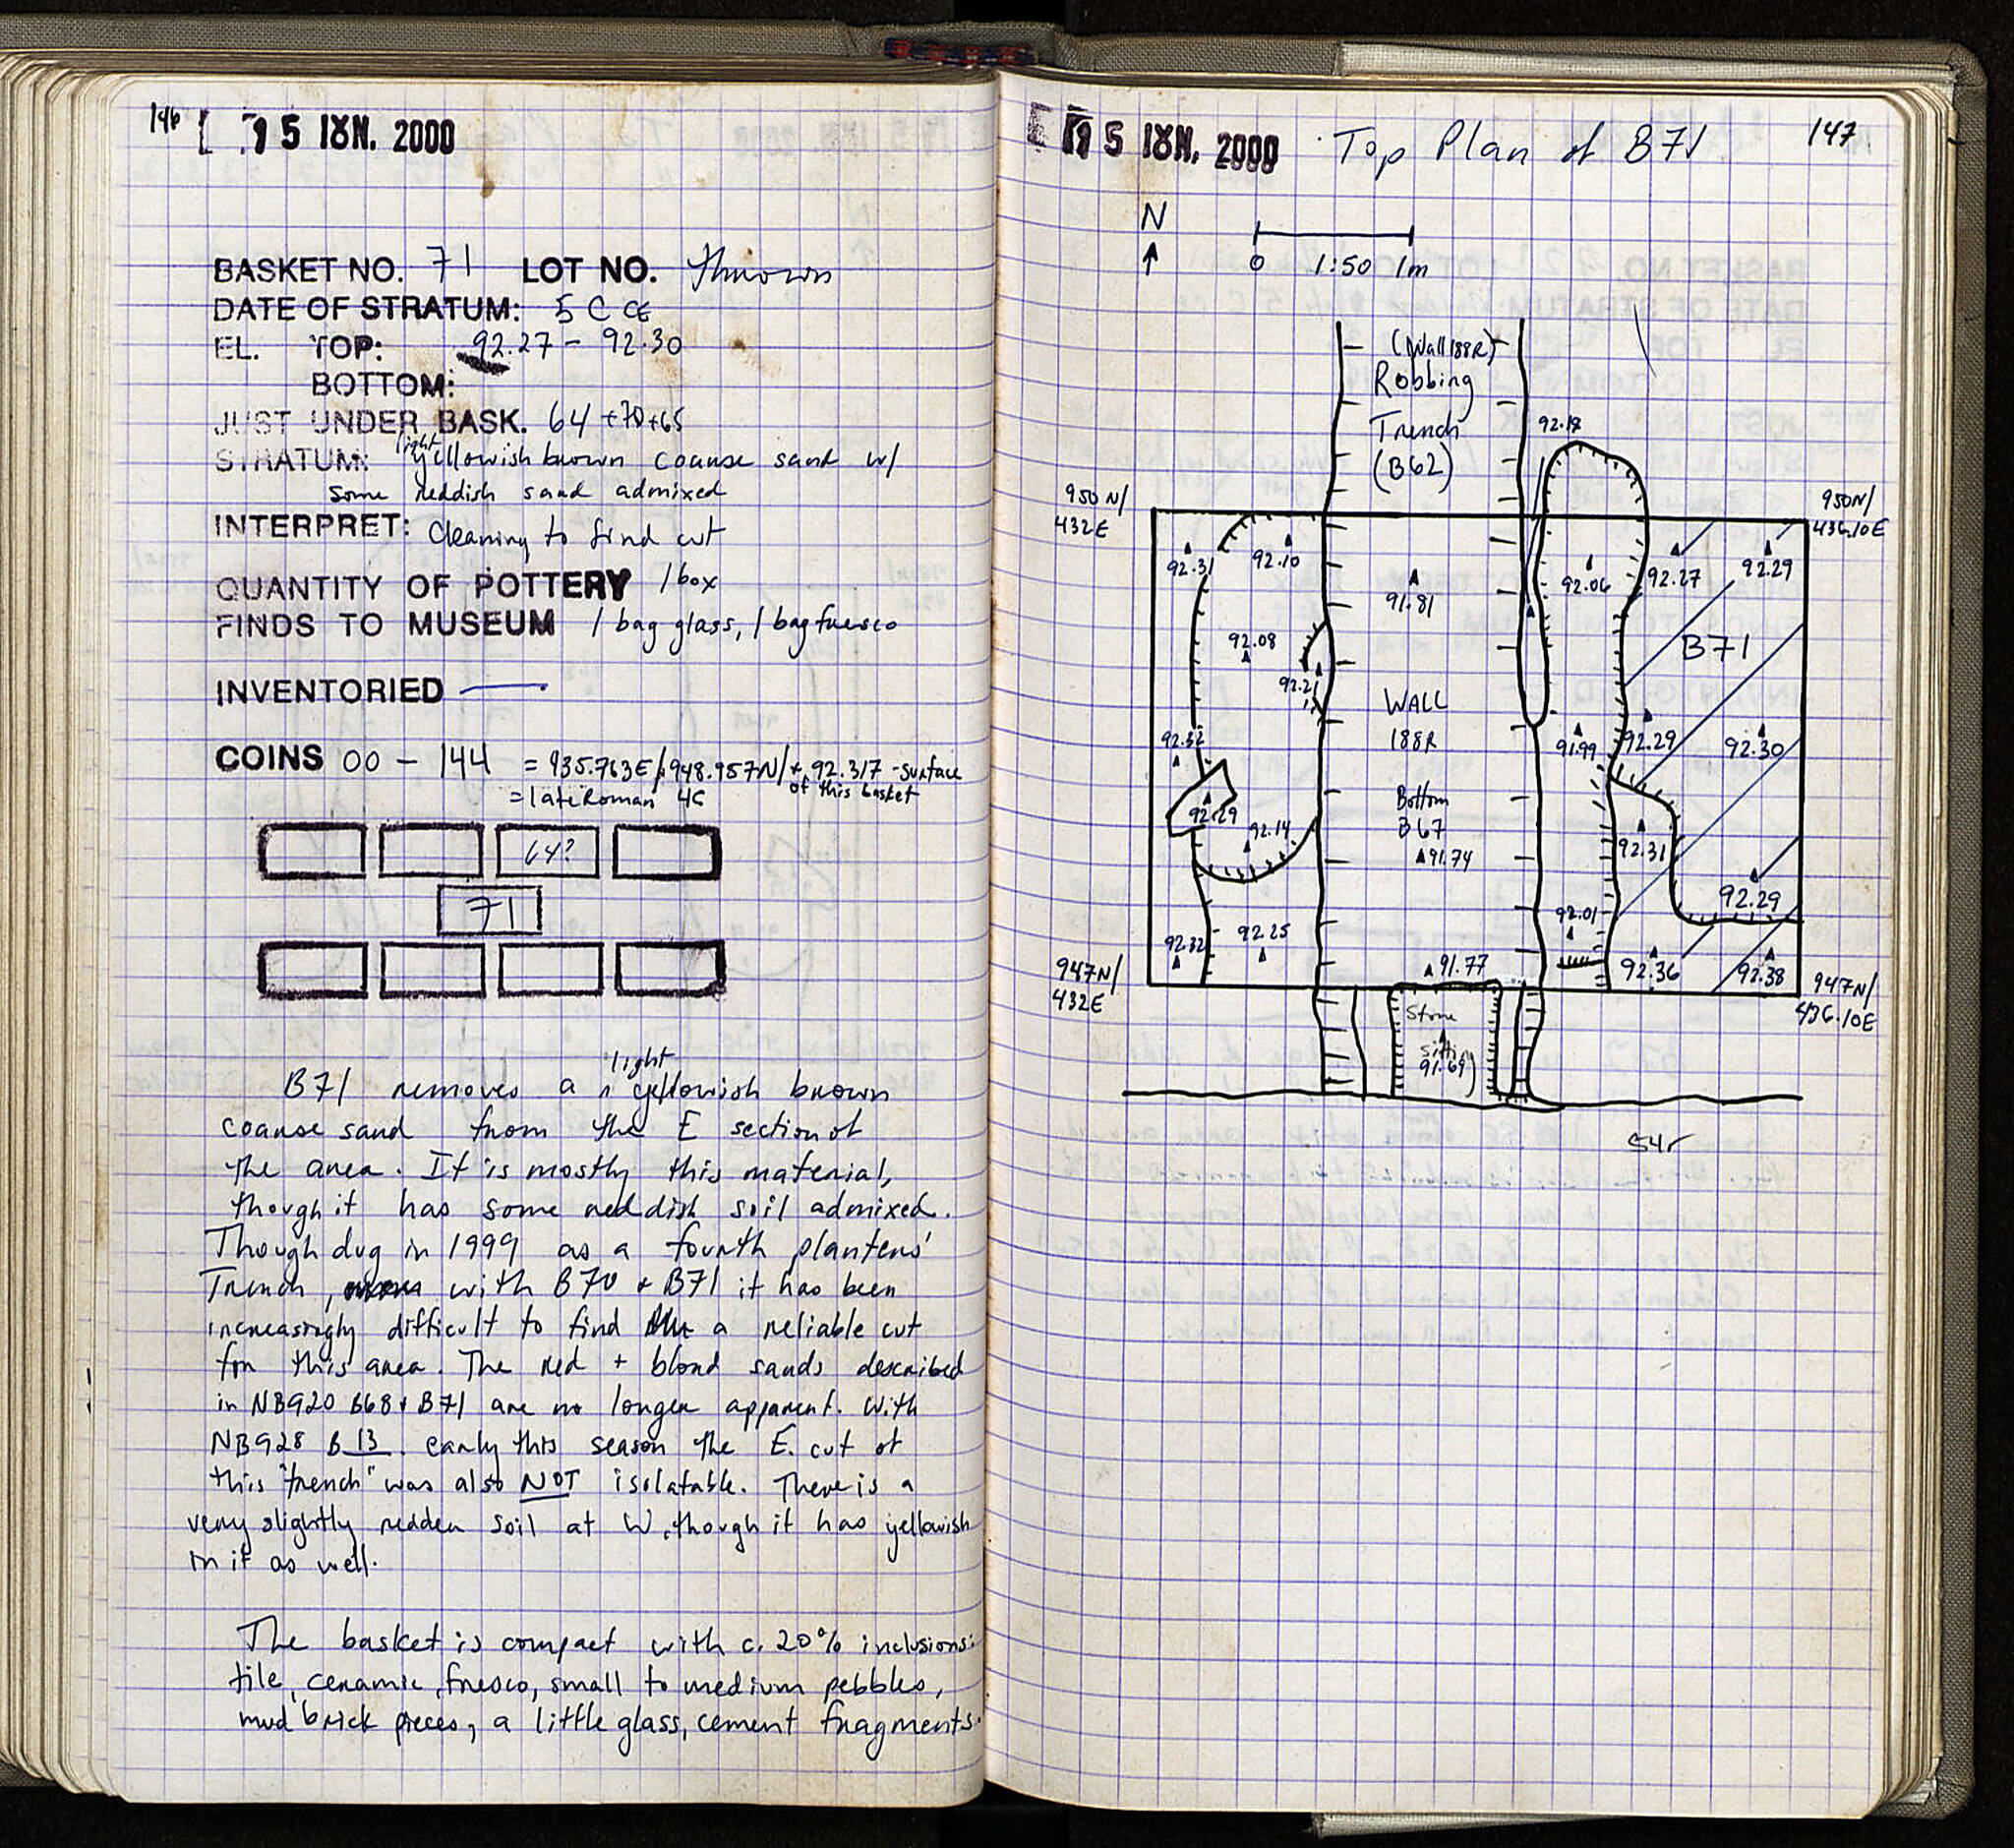 146
15 ΙΟΥΝ. 2000
BASKET NO. 71 LOT NO. thrown
DATE OF STRATUM: 5 C CE
EL. TOP: 92.27 - 92.30
BOTTOM:
JUST UNDER BASK. 64 + 70 + 65
STRATUM: light yellowish brown coarse sand w/
some reddish sand admixed
INTERPRET: Cleaning to find cut
QUANTITY OF POTTERY 1 box
FINDS TO MUSEUM 1 bag glass, 1 bag fresco
INVENTORIED —
COINS 00 - 144 = 935.763E/948.957N/+92.317 - surface
of this basket
= late Roman 4C
64?
71
B71 removes a light yellowish brown
coarse sand from the E section of
the area. It is mostly this material,
though it has some reddish soil admixed.
Though dug in 1999 as a fourth planters'
Trench, with B70 + B71 it has been
increasingly difficult to find a reliable cut
for this area. The red + blond sands described
in NB920 B68 + B71 are no longer apparent. With
NB928 B 13. early this season the E. cut of
this "trench" was also NOT isolatable. There is a
very slightly redder soil at W, though it has yellowish
in it as well.
The basket is compact with c. 20% inclusions:
tile, ceramic, fresco, small to medium pebbles,
mud brick pieces, a little glass, cement fragments.
147
15 ΙΟΥΝ. 2000 Top Plan of B71
N
0 1:50 1m
(Wall 188R)
Robbing
Trench
(B62)
92.18
950N/
432E
950N/
436.10E
92.31
92.10
91.81
92.06
92.27
92.29
92.08
92.21
B71
WALL
188R
92.32
91.99
92.29
92.30
Bottom
B67
91.74
92.29
92.14
92.31
92.29
92.01
92.32
92.25
91.77
92.36
92.38
947N/
432E
947N/
436.10E
Stone
91.69